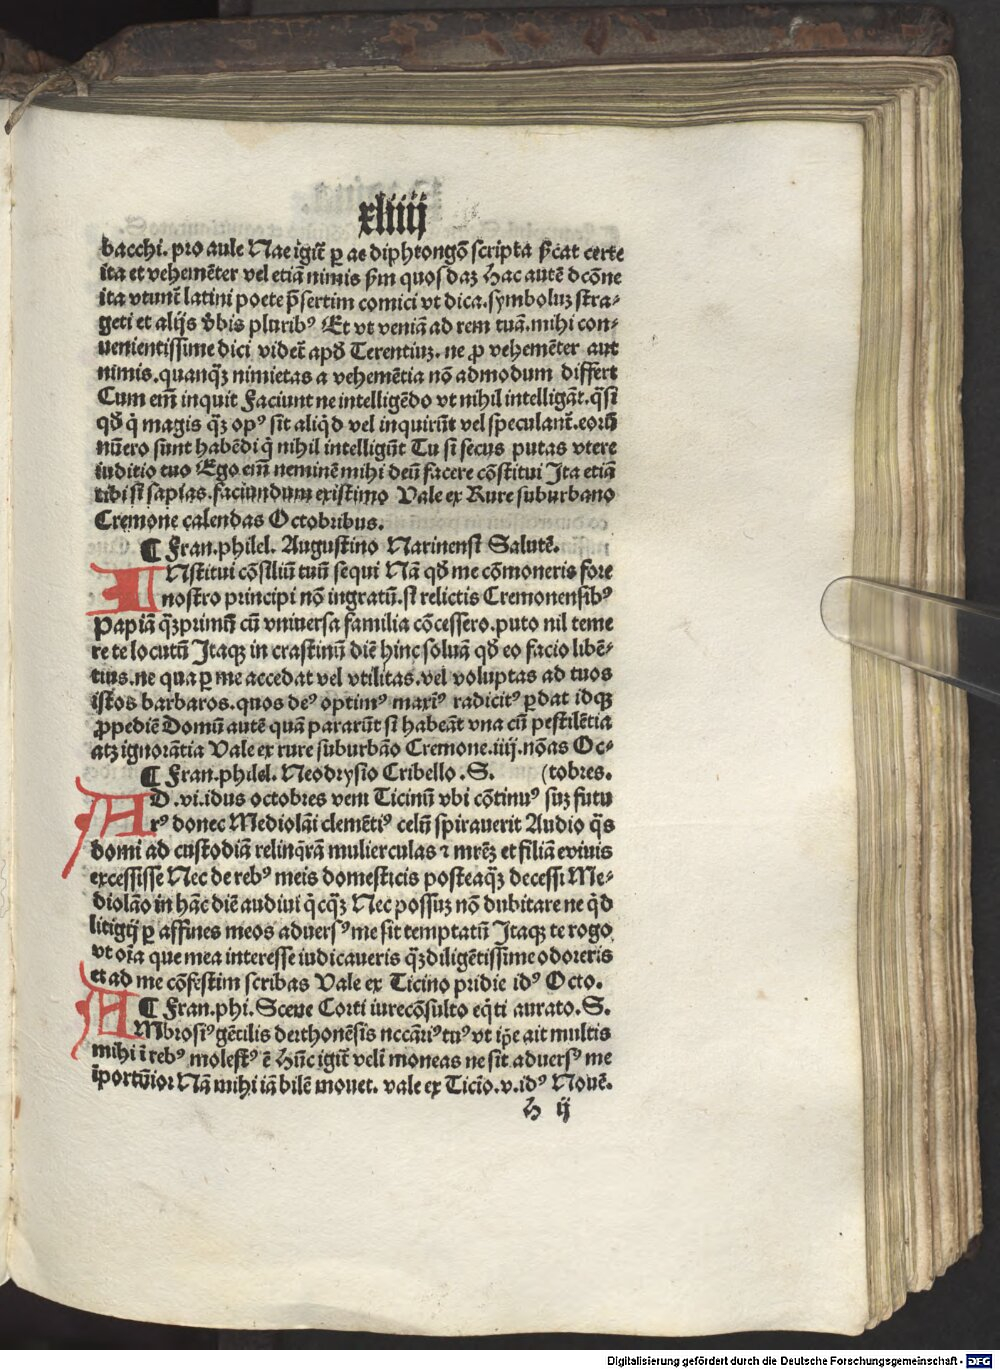 xliiij
bacchi. pro aule Nae igit᷑ ꝑ ae diphtongō scripta p̄cat certe
ita et vehemēter vel etiā nimis p̄m quosdaꝫ Hac autē dcōne
ita vtunt᷑ latini poete p̄sertim comici vt dica. symboluꝫ stra⸗
geti et alijs v̄bis pluribꝰ Et vt veniā ad rem tuā. mihi con⸗
uenientissime dici videt᷑ apđ Terentiuꝫ. ne ꝓ vehemēter aut
nimis. quanqꝫ̄ nimietas a vehemētia nō admodum differt
Cum em̄ inquit Faciunt ne intelligēdo vt nihil intelligāt. q̄si
qđ q̇ magis qꝫ̄ opꝰ sit aliq̇d vel inquirūt vel speculant᷑. eorū
nūero sunt habēdi q̇ nihil intelligūt Tu si secus putas vtere
iuditio tuo Ego em̄ neminē mihi deū facere cōstitui Ita etiā
tibi si sapias. faciundum existimo Vale ex Rure suburbano
Cremone calendas Octobribus.
¶ Fran. philel. Augustino Narinensi Salutē.
INstitui cōsiliū tuū sequi Nā qđ me cōmoneris fore
nostro principi nō ingratū. si relictis Cremonensibꝰ
Papiā qꝫ̄primū cū vniuersa familia cōcessero. puto nil teme
re te locutū Itaqꝫ in crastinū diē hinc soluā qđ eo facio libē⸗
tius. ne qua ꝑ me accedat vel vtilitas. vel voluptas ad tuos
istos barbaros. quos deꝰ optimꝰ maxiꝰ radicitꝰ ꝑdat idqꝫ
ꝓpediē Domū autē quā pararūt si habeāt vna cū pestilētia
atqꝫ ignorātia Vale ex rure suburbāo Cremone. iiij. nōas Oc⸗
¶ Fran. philel. Neodrysio Cribello . S. (tobres.
AD . vi. idus octobres veni Ticinū vbi cōtinuꝰ suꝫ futu
rꝰ donec Mediolāi clemētiꝰ celū spirauerit Audio q̄s
domi ad custodiā relinq̄rā mulierculas ⁊ mrēꝫ et filiā eviuis
excessisse Nec de rebꝰ meis domesticis posteaqꝫ̄ decessi Me⸗
diolāo in hāc diē audiui q̇cqꝫ̄ Nec possuꝫ nō dubitare ne q̇d
litigij ꝑ affines meos aduersꝰ me sit temptatū Itaqꝫ te rogo
vt oīa que mea interesse iudicaueris qꝫ̄diligētissime odoreris
et ad me cōfestim scribas Vale ex Ticino pridie idꝰ Octo.
¶ Fran. phi. Sceue Corti iurecōsulto eq̇ti aurato . S.
AMbrosiꝰ gētilis derthonēsis nccāriꝰ tuꝰ vt ip̄e ait multis
mihi ī rebꝰ molestꝰ ē Hūc igit᷑ veli moneas ne sit aduersꝰ me
īportūior Nā mihi iā bilē mouet. vale ex Ticīo. v. idꝰ Nouē.
h ij
Digitalisierung gefördert durch die Deutsche Forschungsgemeinschaft - DFG